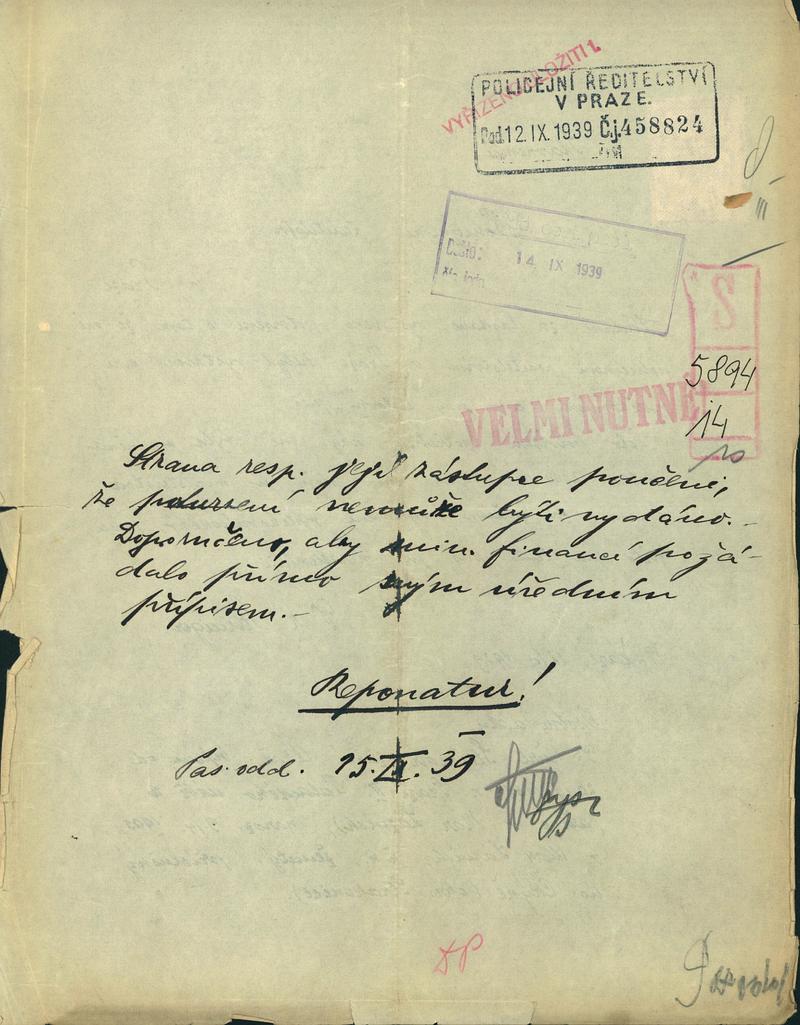 VYŘÍZENO ULOŽITI 1.
POLICEJNÍ ŘEDITELSTVÍ
V PRAZE.
Pod. 12. IX. 1939 Č.j. 458824
III
Došlo: 14 IX 1939
S
5894
14
VELMI NUTNÉ
Strana resp. její zástupce poučeni,
že potvrzení nemůže býti vydáno. –
Doporučeno, aby min. financí požá-
dalo přímo svým úředním
přípisem. –
Reponatur!
Pas. odd. 15. IX. 39